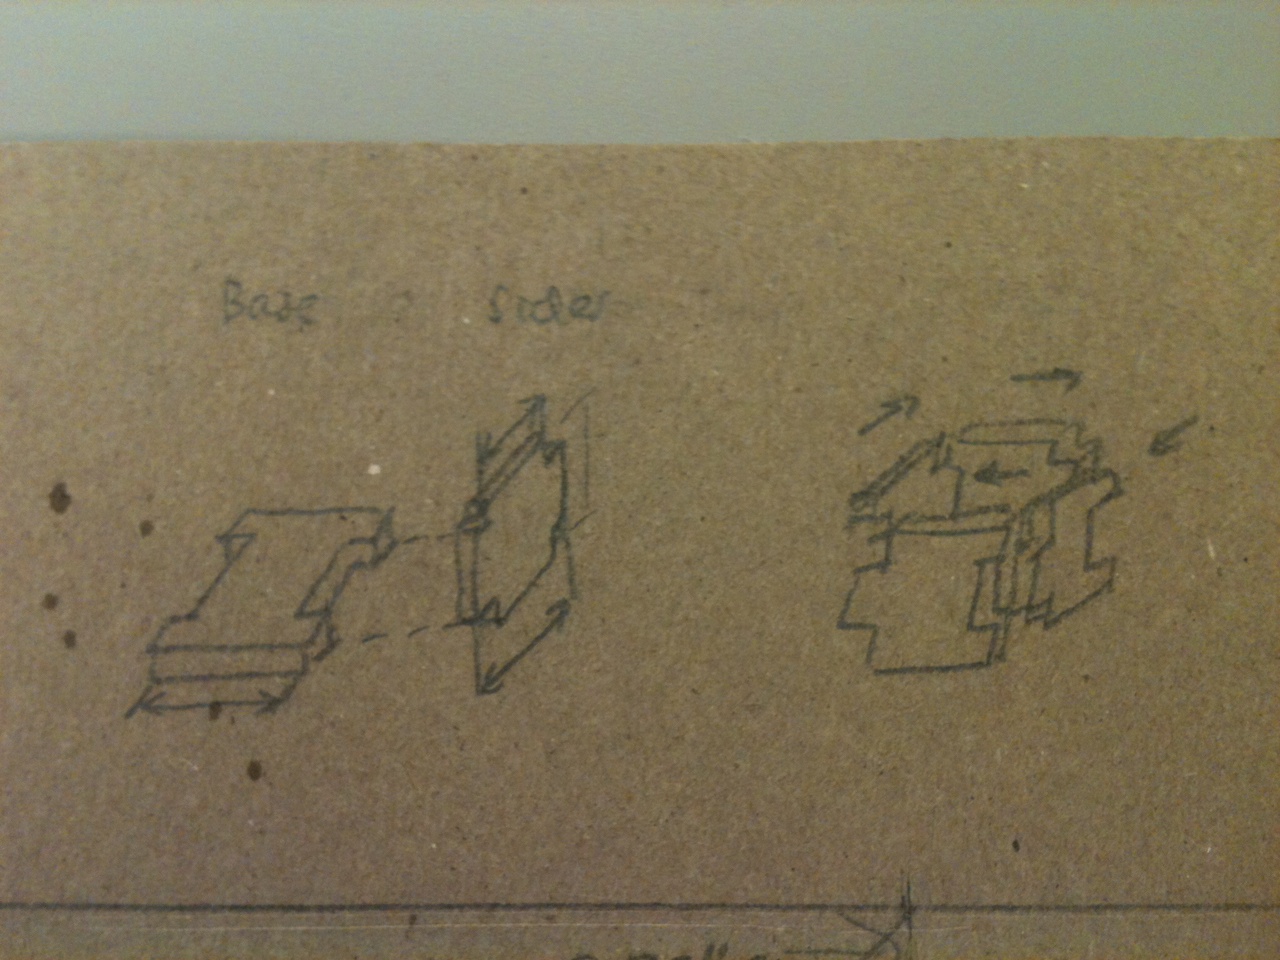 Base
Slider